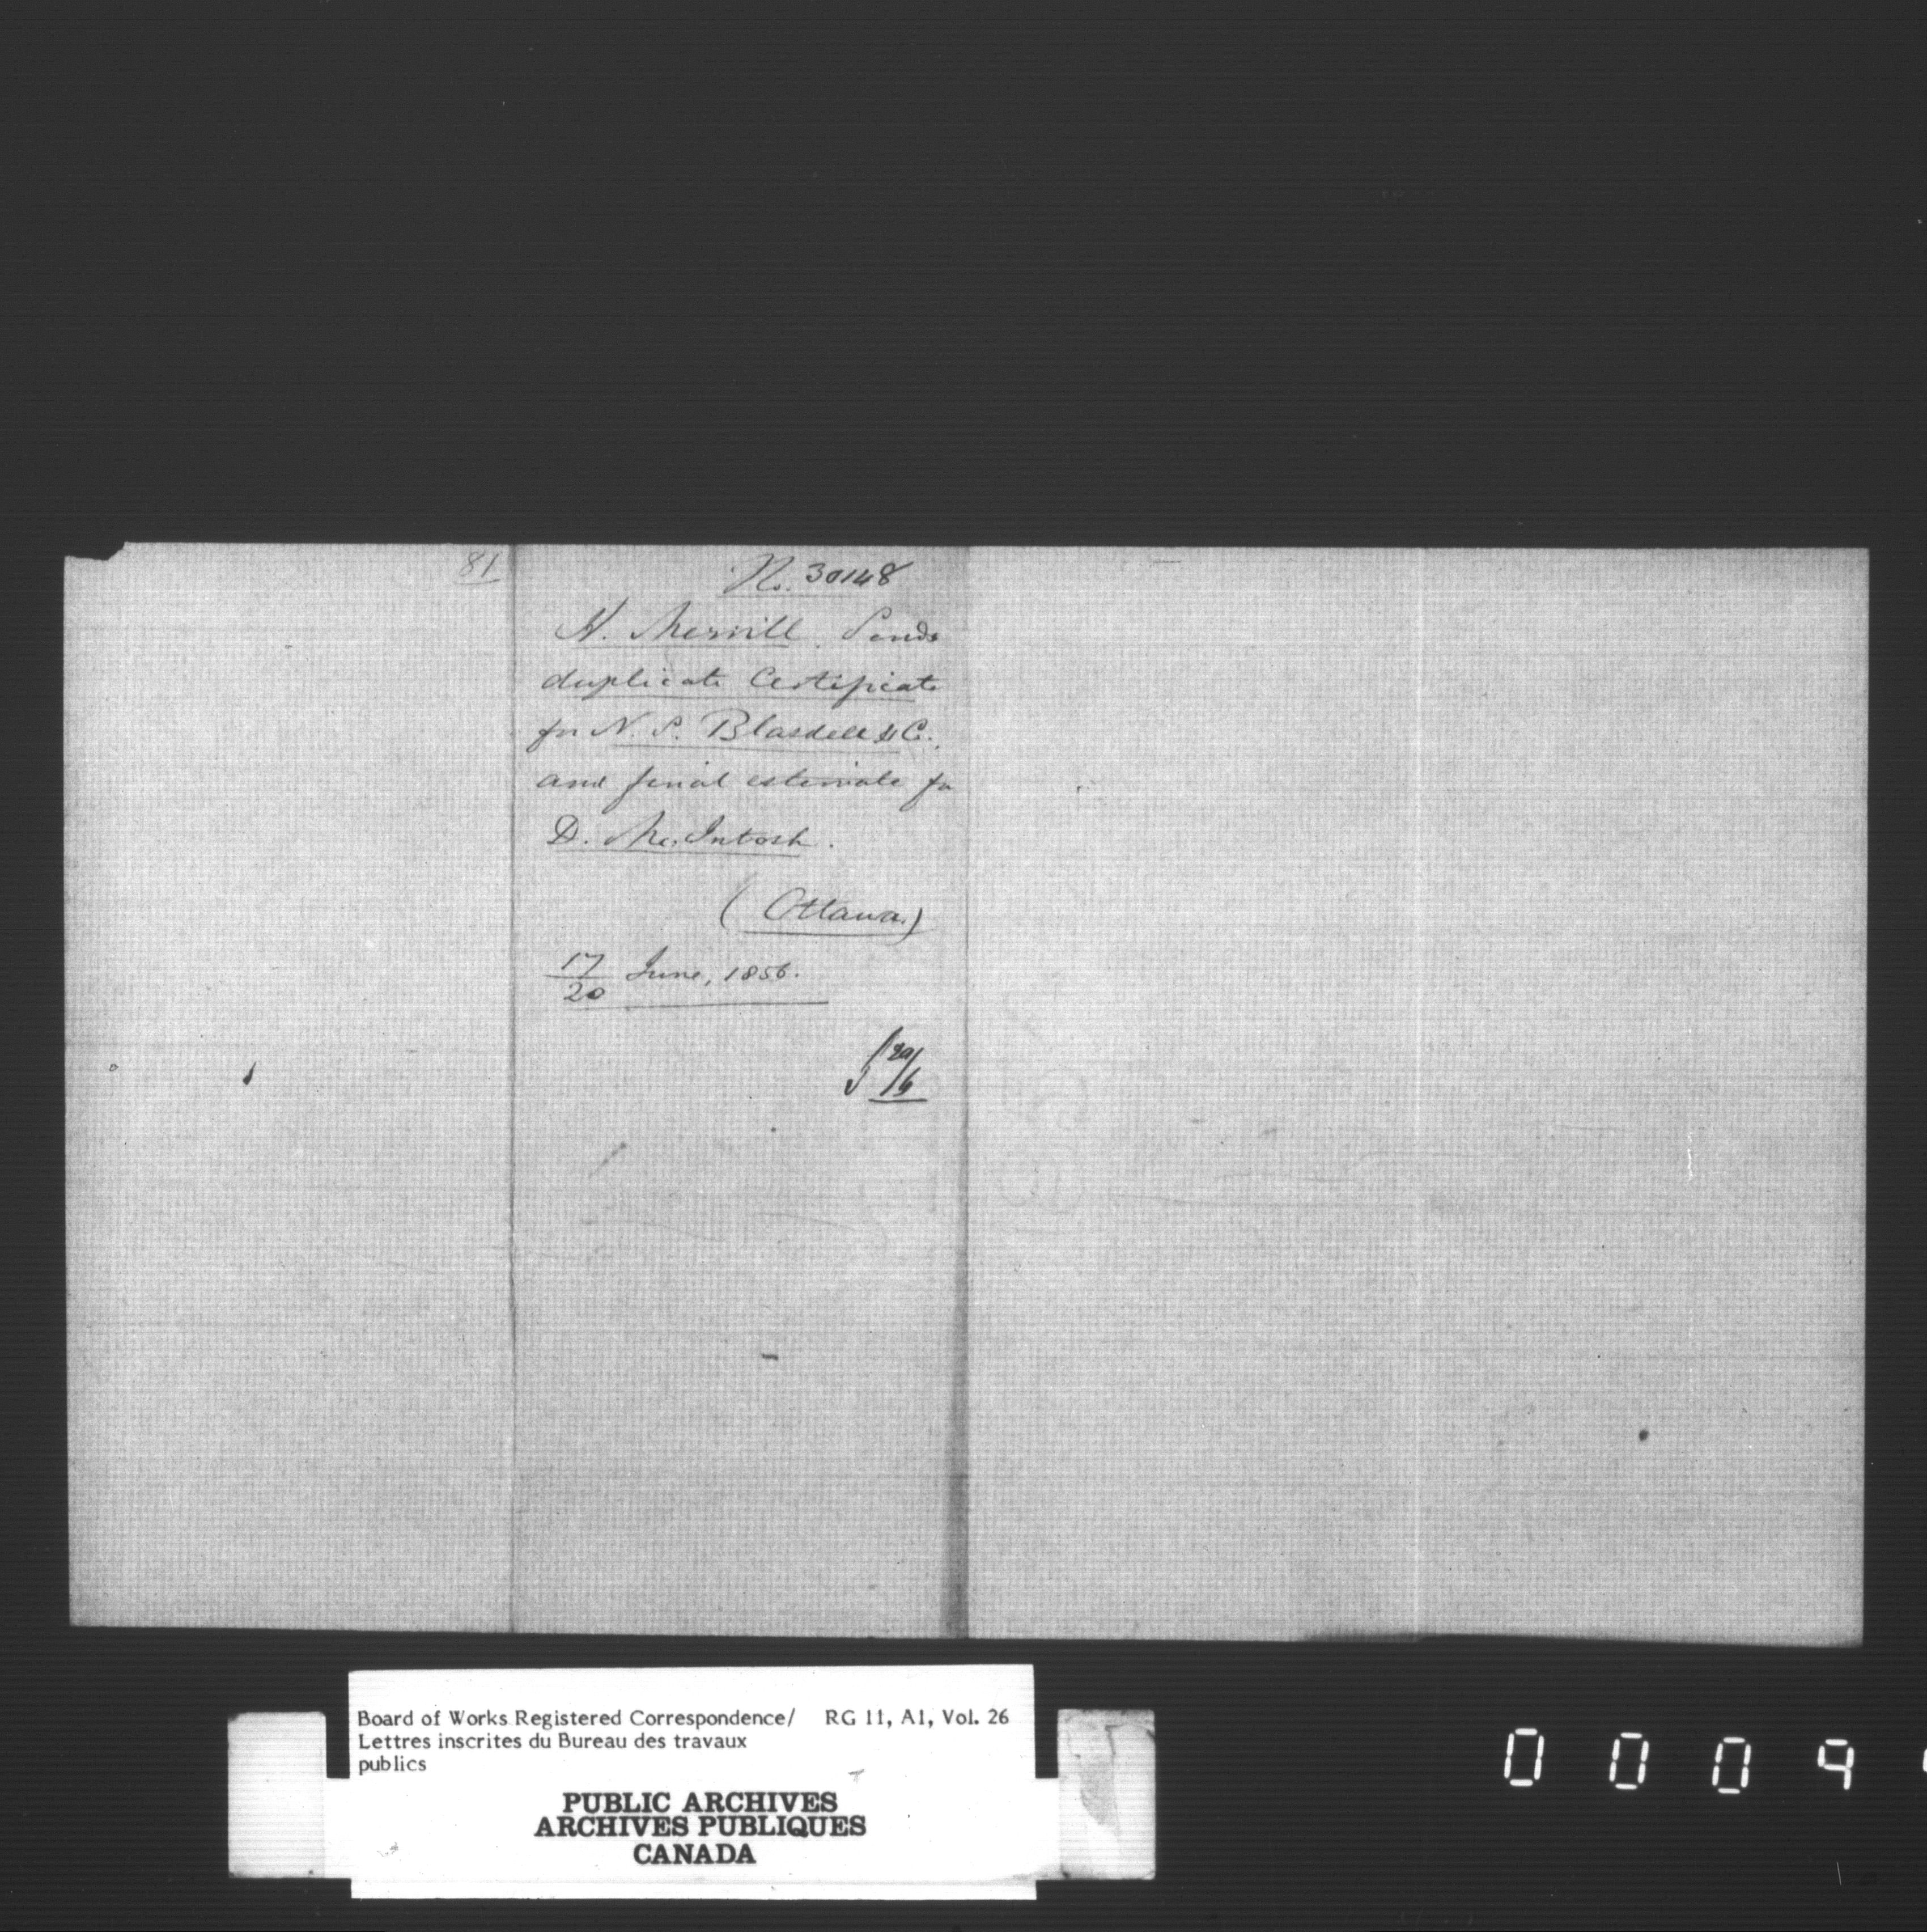 81
No. 30148
H. Merrill Sends
duplicate Certificate
for N. S. Blasdell & Co.,
and final estimate for
D. McIntosh.
(Ottawa.)
17/20 June, 1856.
20/6
Board of Works Registered Correspondence/ RG 11, A1, Vol. 26
Lettres inscrites du Bureau des travaux
publics
PUBLIC ARCHIVES
ARCHIVES PUBLIQUES
CANADA
0 0 0 9